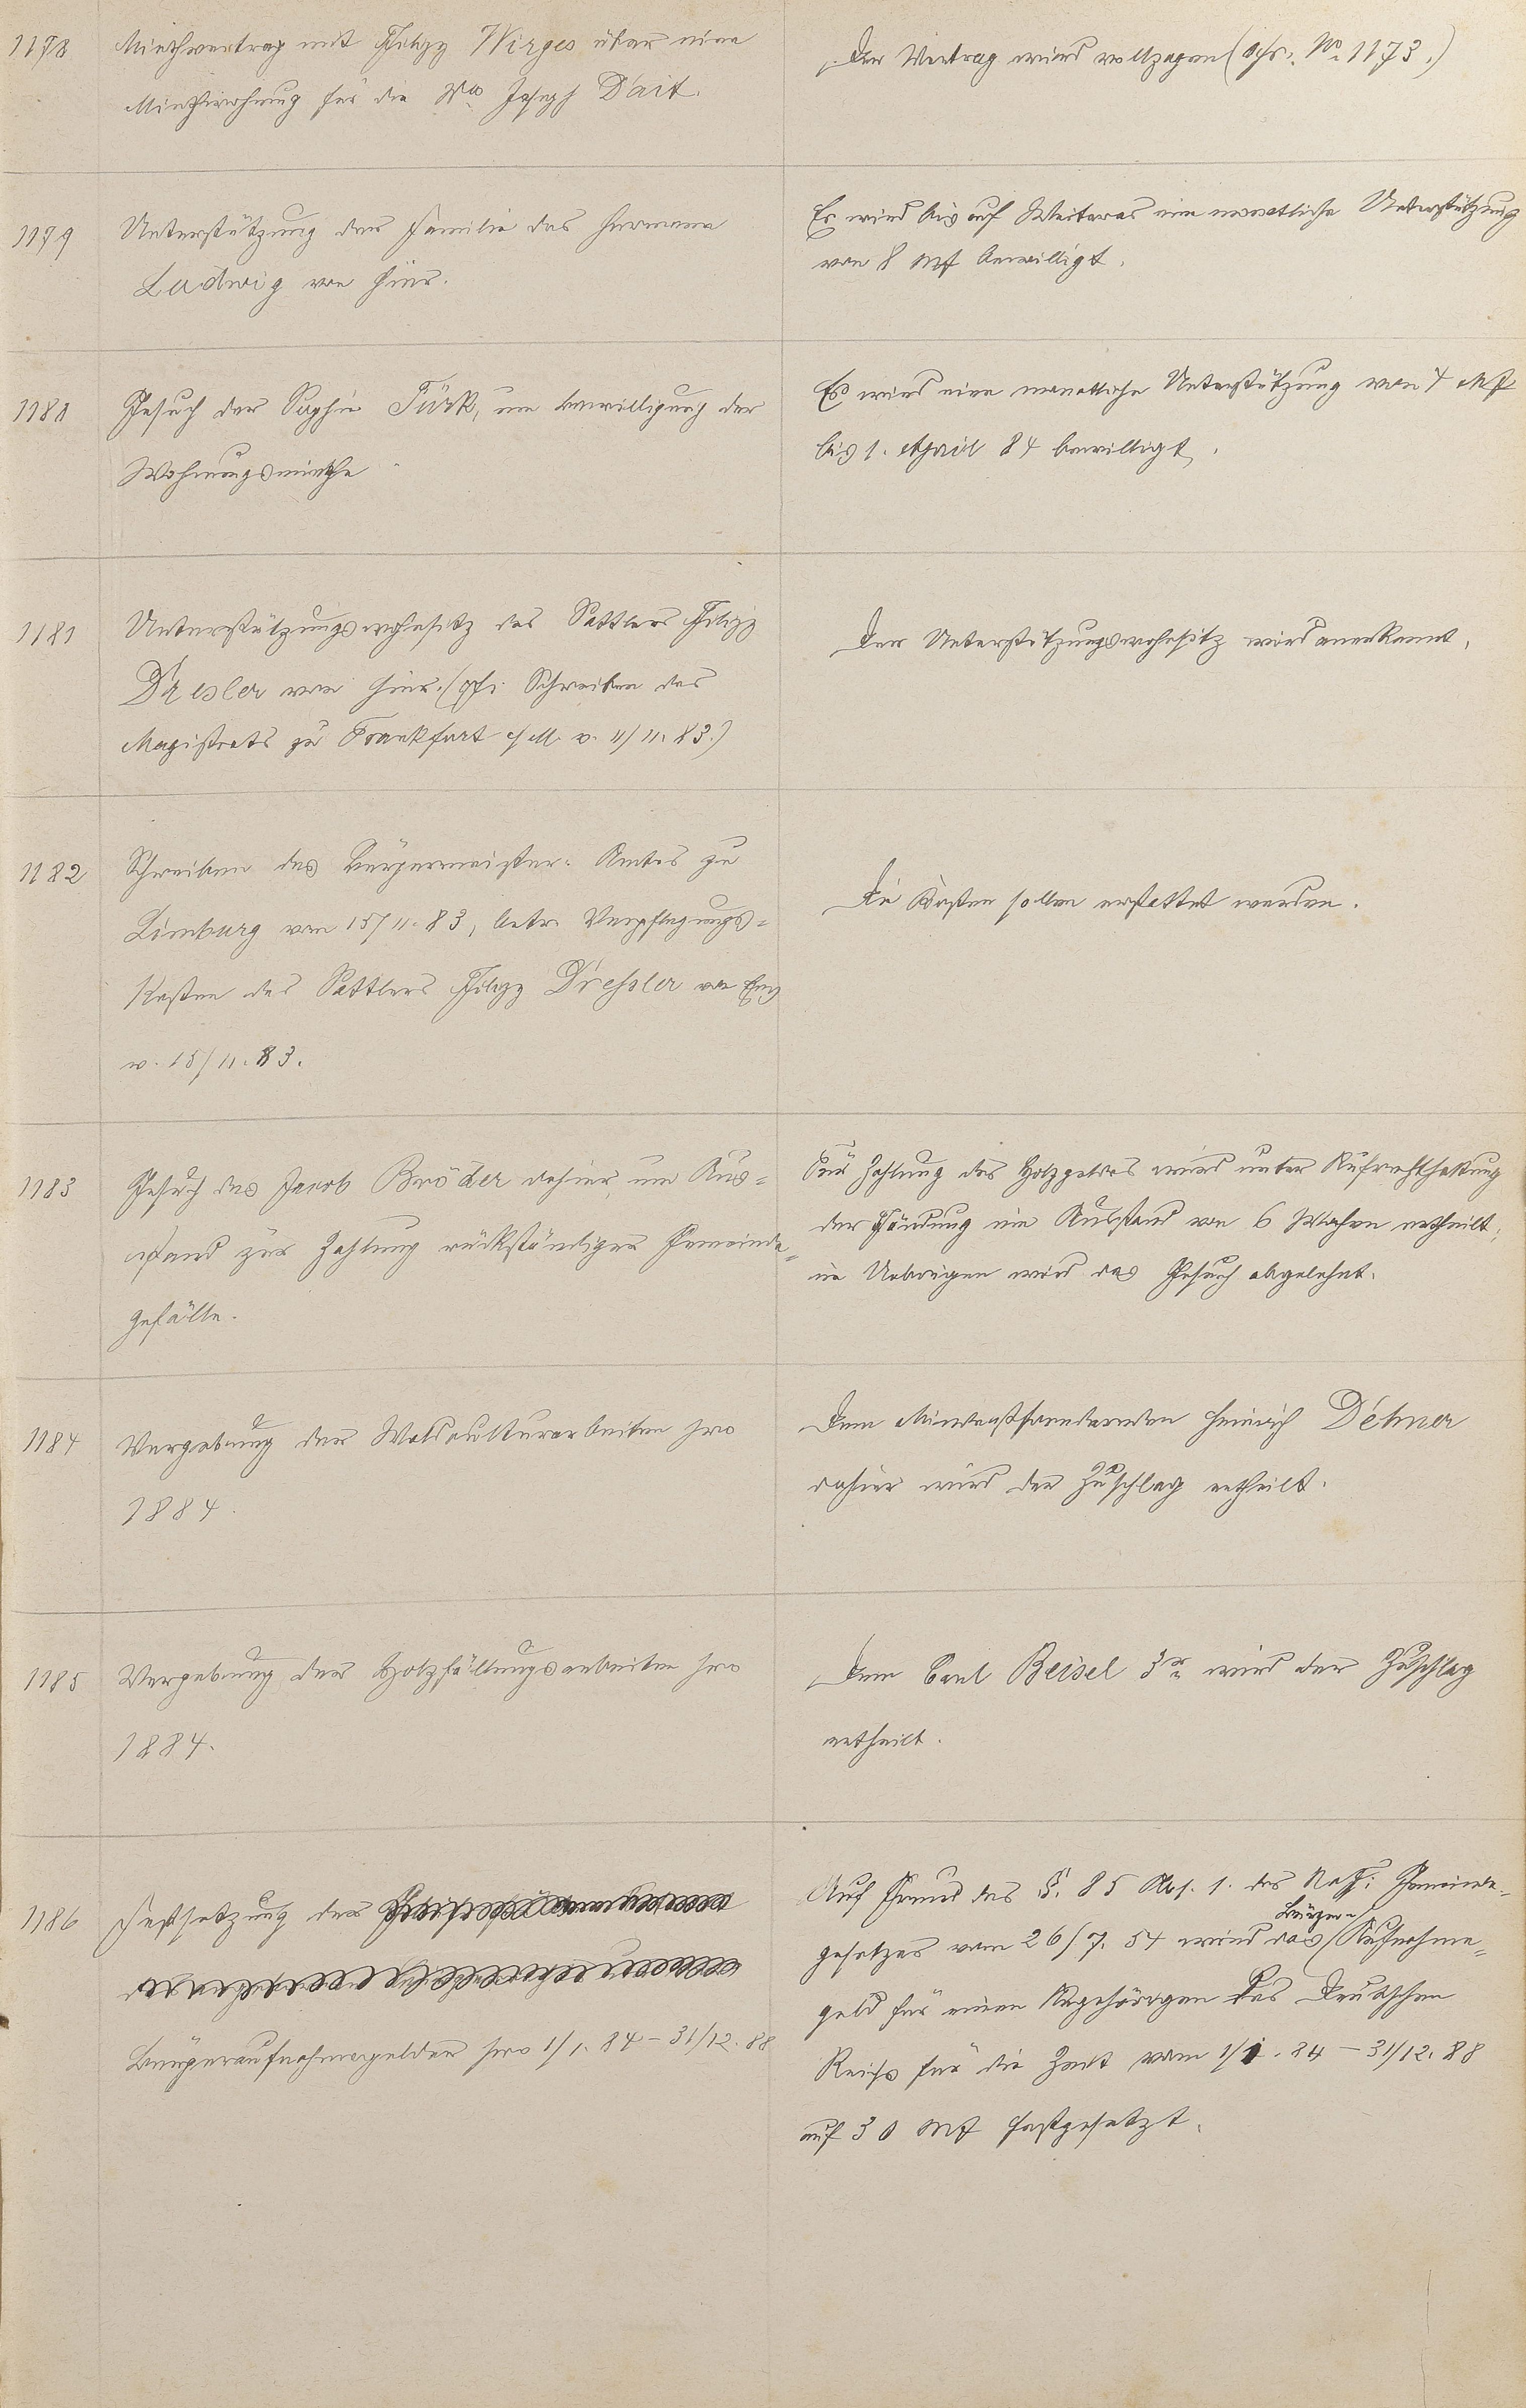 1178
Miethvertrag mit Philipp Wirges über eine
Miethwohnung für die Wwe Joseph Dait.
Der Vertrag wird vollzogen (cfr. No 1173.)
1179
Unterstützung der Familie des Hermann
Ludwig von hier.
Es wird bis auf Weiteres eine monatliche Unterstützung
von 8 Mk bewilligt.
1180
Gesuch der Sophie Türk, um Bewilligung der
Wohnungsmiethe
Es wird eine monatliche Unterstützung von 4 Mk
bis 1. April 84 bewilligt.
1181
Unterstützungswohnsitz des Sattlers Philipp
Dresler von hier. (cfr. Schreiben des
Magistrats zu Frankfurt a/M. v. 11/11. 83.)
Der Unterstützungswohnsitz wird anerkannt.
1182
Schreiben des Bürgermeister-Amtes zu
Limburg vom 15/11. 83, betr. Verpflegungs-
Kosten des Sattlers Philipp Dressler von Ems
v. 15/11. 83.
Die Kosten sollen erstattet werden.
1183
Gesuch des Jacob Bröder dahier, um Aus-
stand zur Zahlung rückständiger Gemeinde-
gefälle.
Zur Zahlung des Holzgeldes wird unter Aufrechthaltung
der Pfändung ein Ausstand von 6 Wochen ertheilt,
im Uebrigen wird das Gesuch abgelehnt.
1184
Vergebung der Waldculturarbeiten pro
1884.
Dem Mindestfordernden Heinrich Dehner
dahier wird der Zuschlag ertheilt.
1185
Vergebung der Holzfällungsarbeiten pro
1884.
Dem Carl Beisel 3r wird der Zuschlag
ertheilt.
1186
Festsetzung der
Bürgeraufnahmegelder pro 1/1. 84 – 31/12. 88
Auf Grund des §. 85 Abs. 1. des Nass. Gemeinde-
gesetzes vom 26/7. 54 wird das Bürger-Aufnahme-
geld für einen Angehörigen des Deutschen
Reichs für die Zeit vom 1/1. 84 – 31/12. 88
auf 30 Mk festgesetzt.